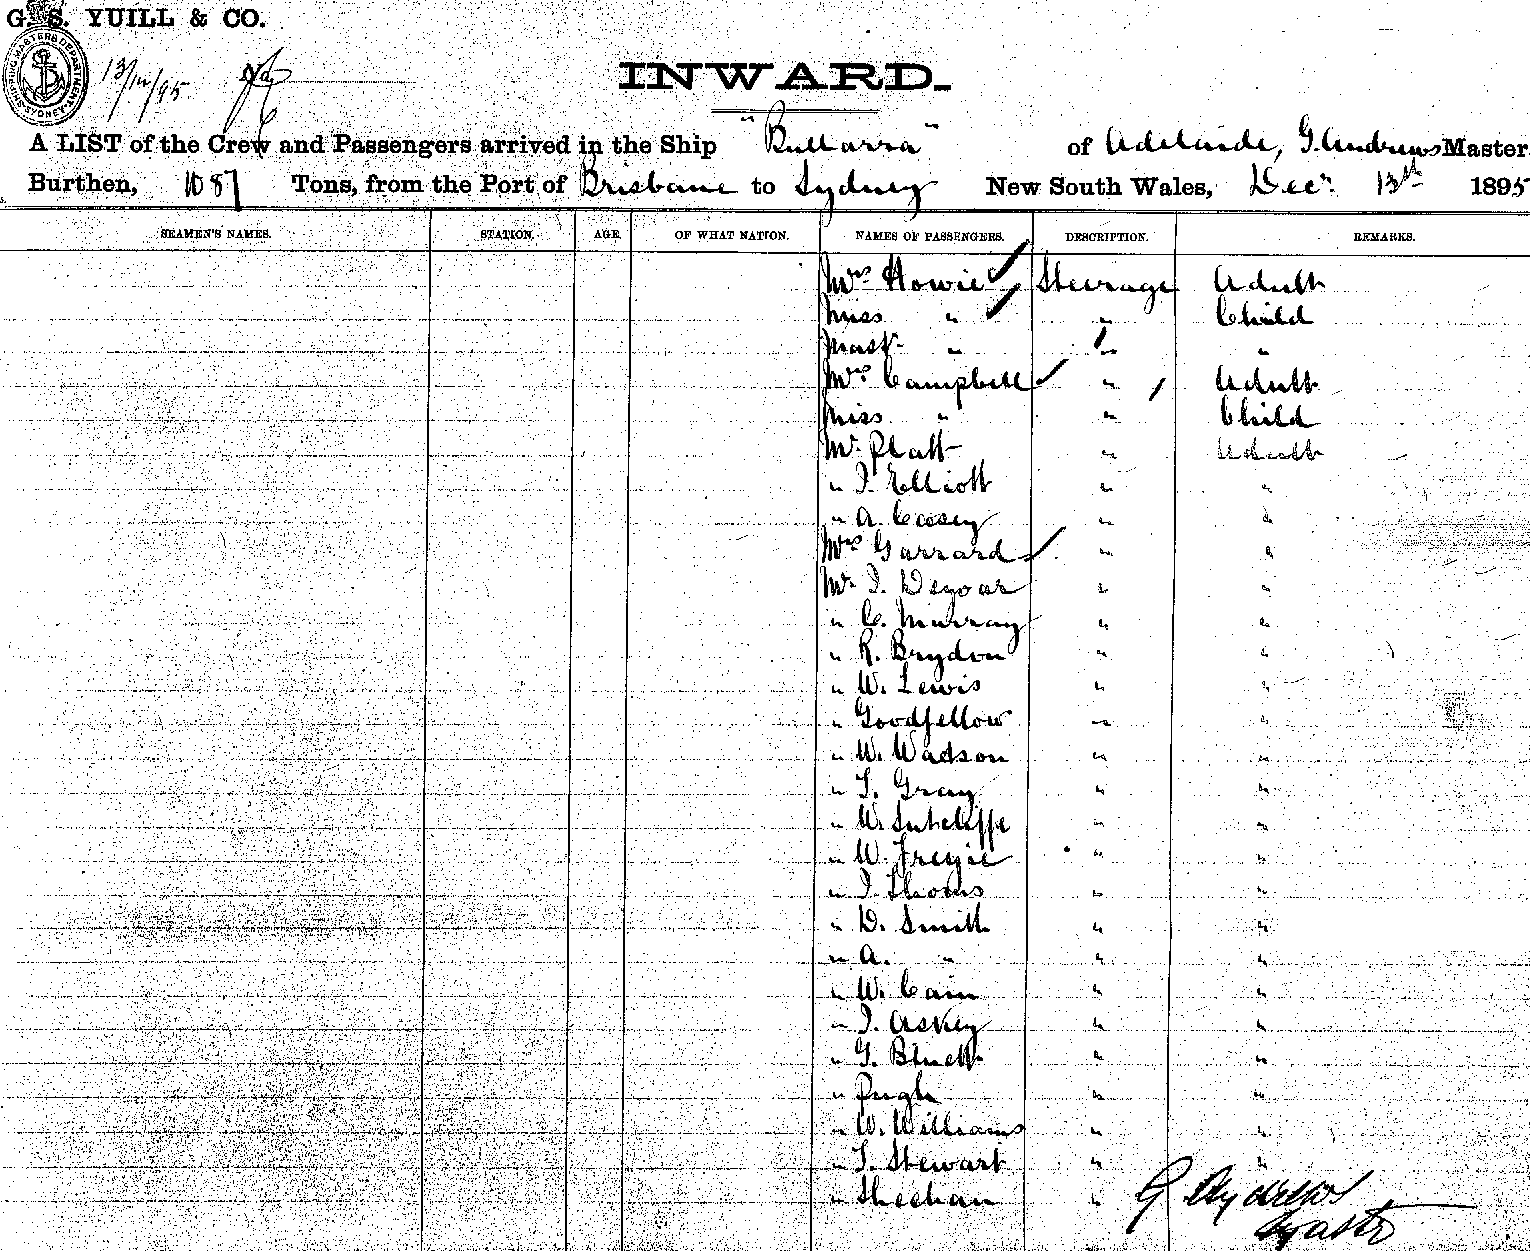 G. S. YUILL & CO.
13/12/95
INWARD.
A LIST of the Crew and Passengers arrived in the Ship "Bullarra" of Adelaide, G. Andrews Master
Burthen, 1087 Tons, from the Port of Brisbane to Sydney New South Wales, Decr. 13th 1895
SEAMEN'S NAMES. STATION. AGE. OF WHAT NATION. NAMES OF PASSENGERS. DESCRIPTION. REMARKS.
Mrs Howie Steerage Adult
Miss " " Child
Mastr " " "
Mrs Campbell " Adult
Miss " " Child
Mr. Platt " Adult
" J. Elliott " "
" A. Casey " "
Mrs Garrard " "
Mr J. Degoar " "
" C. Murray " "
" R. Brydon " "
" W. Lewis " "
" Goodfellow " "
" W. Wadson " "
" T. Gray " "
" W. Sutcliffe " "
" W. " "
" J. Thoms " "
" D. Smith " "
" A. " " "
" W. Cain " "
" J. Askey " "
" G. Bluett " "
" Pugh " "
" W. Williams " "
" T. Stewart " "
" Sheehan "
G Andrews
Master